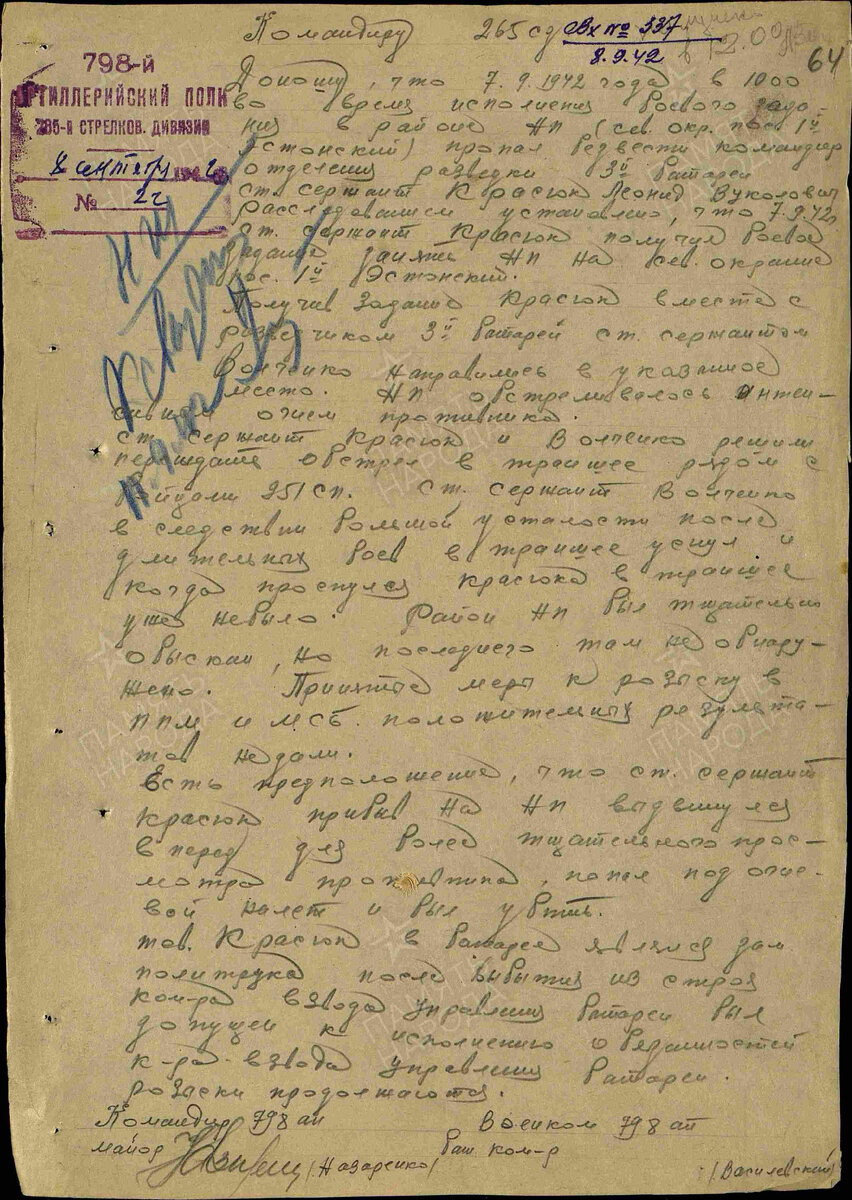 Командиру 265 сд
Вх № 337
8.9.42
в 12.00
64
798-й
АРТИЛЛЕРИЙСКИЙ ПОЛК
265-й СТРЕЛКОВ. ДИВИЗИИ
8 сентября 1942
№ 22
Доношу, что 7.9.1942 года в 1000
во время исполнения боевого зада-
ния в районе НП (сев. окр. пос. 1й
Эстонский) пропал безвести командир
отделения разведки 3й батареи
ст. сержант Красюк Леонид Вуколович
расследованием установлено, что 7.9.42г
ст. сержант Красюк получил боевое
задание занять НП на сев. окраине
пос. 1й Эстонский.
Получив задание Красюк вместе с
разведчиком 3й батареи ст. сержантом
Волченко направились в указанное
место. НП обстреливалось интен-
сивным огнем противника.
ст. сержант Красюк и Волченко решили
переждать обстрел в траншее рядом с
бойцами 951 сп. Ст. сержант Волченко
в следствии большой усталости после
длительных боев в траншее уснул и
когда проснулся Красюка в траншее
уже небыло. Район НП был тщательно
обыскан, но последнего там не обнару-
жено. Принятые меры к розыску в
ППМ и МСБ. положительных результа-
тов не дали.
Есть предположение, что ст. сержант
Красюк прибыв на НП выдвинулся
вперед для более тщательного прос-
мотра противника, попал под огне-
вой налет и был убит.
тов. Красюк в батарее являлся зам
политрука после выбытия из строя
ком-ра взвода управления батареи был
допущен к исполнению обязанностей
к-ра взвода управления батареи.
розыски продолжаются.
Командир 798 ап Военком 798 ап
майор (Назаренко) бат. ком-р (Василевский)
ПАМЯТЬ НАРОДА